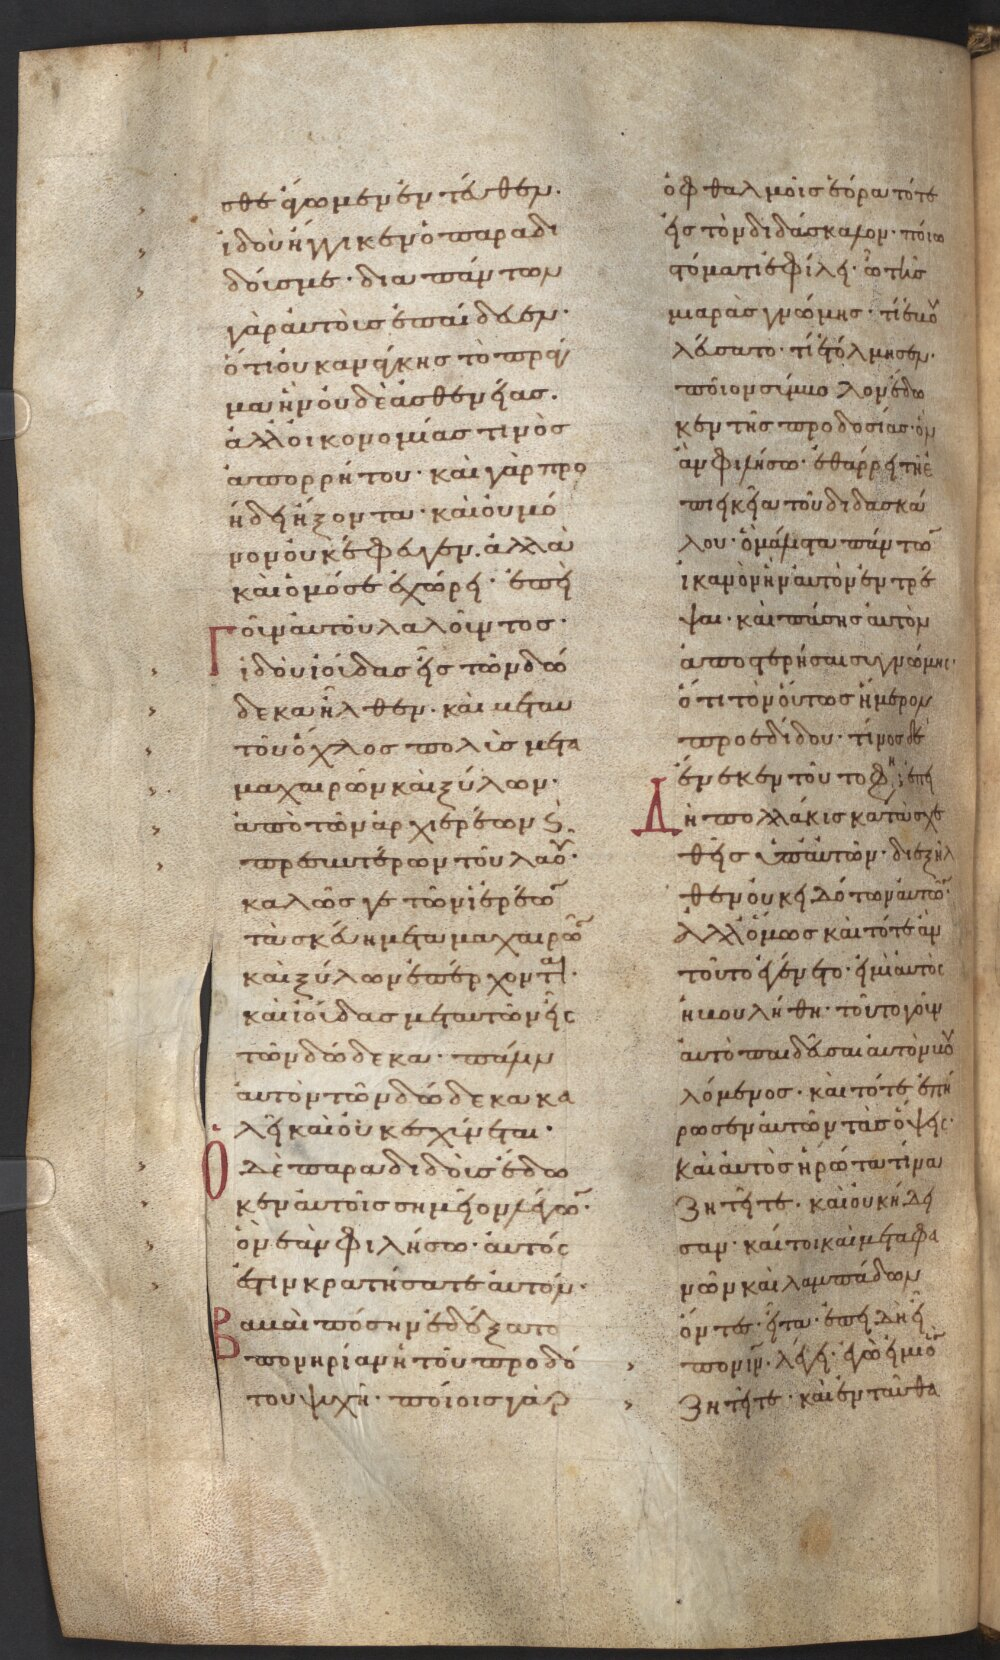 σθε ἄγωμεν ἐντεῦθεν·
ἰδοὺ ἤγγικεν ὁ παραδι
δούς με· δια πάντων
γὰρ αὐτοὺς ἐπαίδευεν·
ὅτι οὐκ ἀνάγκης τὸ πρᾶγ
μα ἦν οὐδὲ ἀσθενείας.
ἀλλ' οἰκονομίας τινὸς
ἀπορρήτου· καὶ γὰρ προ
ήδει ἥξοντα· καὶ οὐ μό
νον οὐκ ἔφευγεν. ἀλλὰ
καὶ ὁμόσε ἐχώρει· ἔτι
Γοῦν αὐτοῦ λαλοῦντος·
ἰδοὺ ἰούδας εἷς τῶν δώ
δεκα ἦλθεν. καὶ μετ αυ
τοῦ ὄχλος πολὺς μετα
μαχαιρῶν καὶ ξύλων·
ἀπὸ τῶν ἀρχιερέων ϗ
πρεσβυτέρων τοῦ λαοῦ·
καλῶς γε τῶν ἱερέων
τὰ σκεύη μετα μαχαιρῶν
καὶ ξύλων ἐπέρχονται·
καὶ ἰούδας μετ αὐτῶν εἷς
τῶν δώδεκα· πάλιν
αὐτὸν τῶν δώδεκα κα
λεῖ καὶ οὐκ ἐσχύνεται·
Ὁ δὲ παραδιδοὺς ἔδω
κεν αὐτοῖς σημεῖον λέγων·
ὃν ἐὰν φιλήσω· αὐτός
ἐστιν κρατήσατε αὐτόν·
Βαβαὶ πόσην ἐδέξατο
πονηρίαν ἡ τοῦ προδό
του ψυχή· ποίοις γὰρ
ὀφθαλμοῖς ἑόρα τότε
εἰς τὸν διδάσκαλον· ποίω
στόματι ἐφίλει· ὢ τῆς
μιαρὰς γνώμης· τί ἐβου
λεύσατο· τί ἐτόλμησεν·
ποῖον σύμβολον ἔδω
κεν τῆς προδοσίας· ὃν
ἂν φιλήσω· ἐθάρρει τῆ ἐ
πιεικεία τοῦ διδασκά
λου· ὃ μάλιστα πάντων
ἱκανὸν ἦν αὐτὸν ἐντρέ
ψαι· καὶ πάσης αὐτὸν
ἀποστερῆσαι συγνώμης·
ὅτι τὸν οὕτως ἥμερον
προεδίδου· τίνος δὲ
ἕνεκεν τοῦτο φησί· ἐπει
Δὴ πολλάκις κατασχε
θεὶς ὑπ αὐτῶν· διεξῆλ
θεν οὐκ εἰδότων αὐτῶν·
Ἀλλ' ὅμως καὶ τότε ἂν
τοῦτο ἐγένετο· εἰ μὴ αὐτὸς
ἠβουλήθη· τοῦτο γοῦν
αὐτὸ παιδεῦσαι αὐτὸν βου
λόμενος· καὶ τότε ἐπή
ρωσεν αὐτῶν τὰς ὄψεις·
καὶ αὐτὸς ἠρώτα τίνα
ζητεῖτε· καὶ οὐκ ἤδει
σαν· καί τοι καὶ μετα φα
νῶν καὶ λαμπάδων
ὄντες· εἶτα ἐπειδὴ εἶ
πον ἰν· λέγει· ἐγώ εἰμι ὃν
ζητεῖτε· καὶ ἐνταῦθα